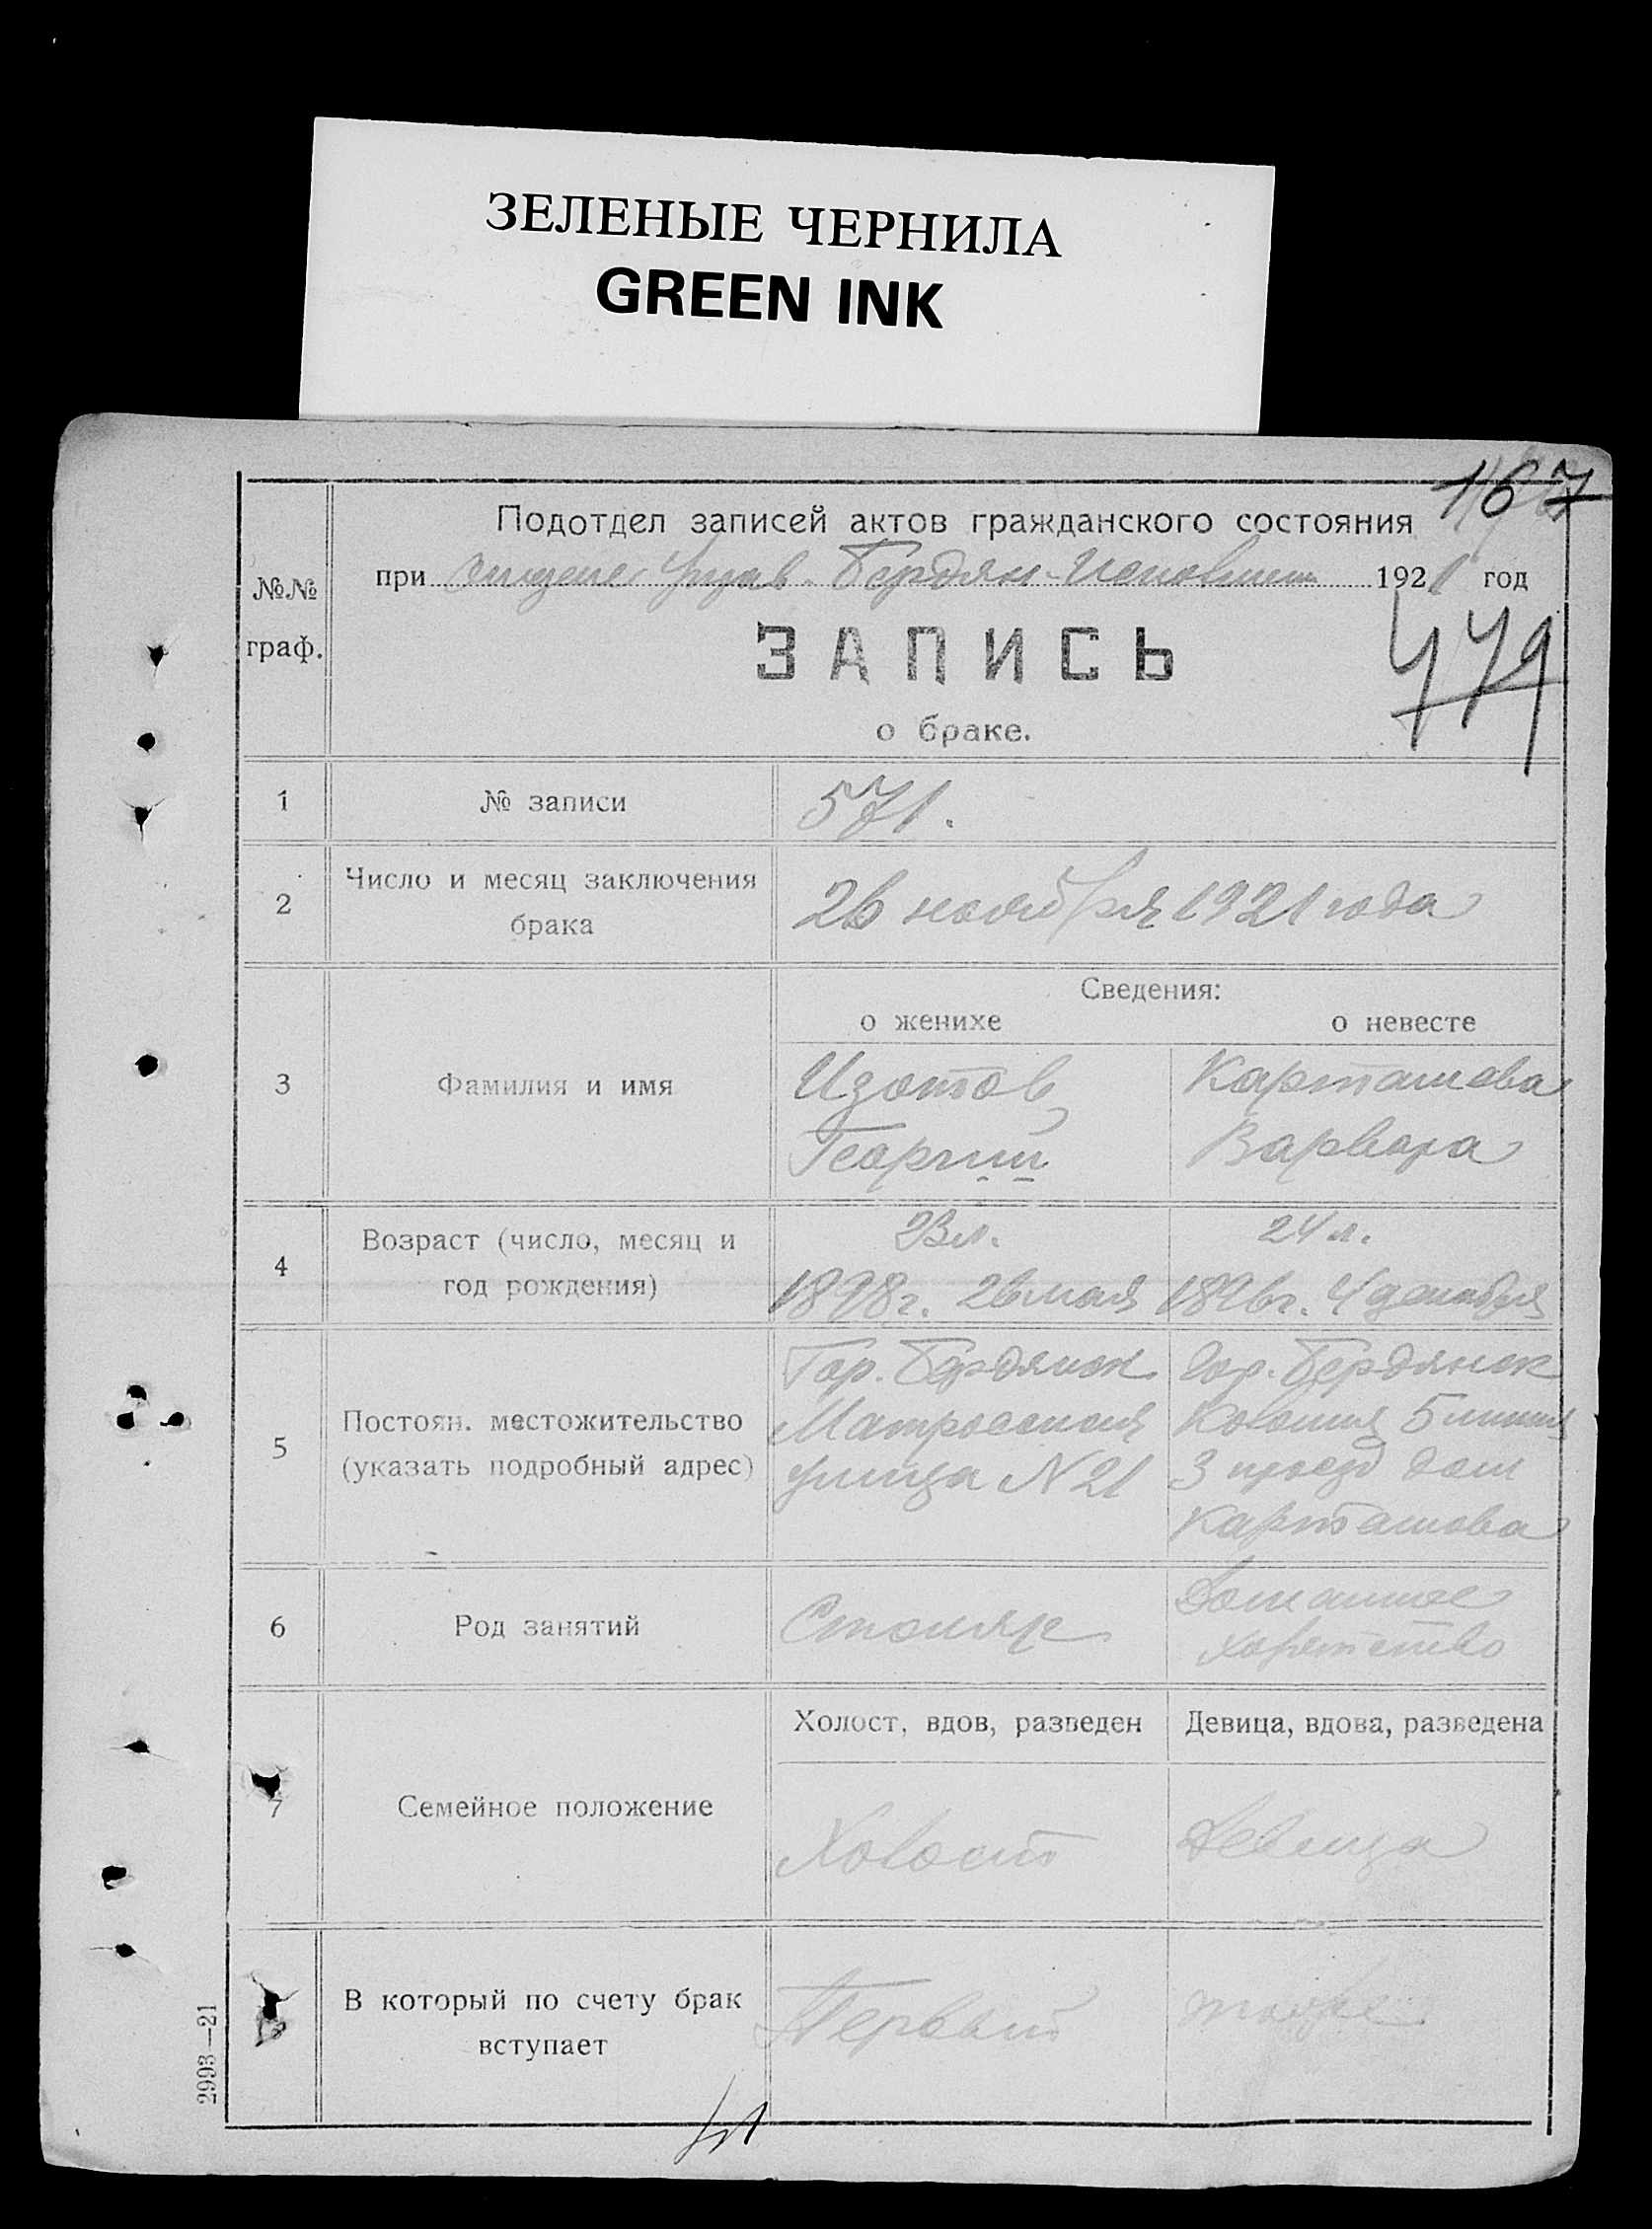 ЗЕЛЕНЫЕ ЧЕРНИЛА
GREEN INK
167
Подотдел записей актов гражданского состояния
при Управ. Бердян. Исполкома 1921 год
№№ граф.
ЗАПИСЬ
479
о браке.
1 № записи 571.
2 Число и месяц заключения брака 26 ноября 1921 года
Сведения:
о женихе о невесте
3 Фамилия и имя Изотов Карташева
Георгий Варвара
4 Возраст (число, месяц и год рождения) 23 л. 24 л.
1898 г. 26 мая 1896 г. 4 декабря
5 Постоян. местожительство (указать подробный адрес) Гор. Бердянск Гор. Бердянск
Матросская Колония 5 линия
улица N 21 3 проезд дом
Карташова
6 Род занятий Столяр Домашнее
хозяйство
Холост, вдов, разведен Девица, вдова, разведена
7 Семейное положение Холост Девица
В который по счету брак вступает Первый тоже
2993—21